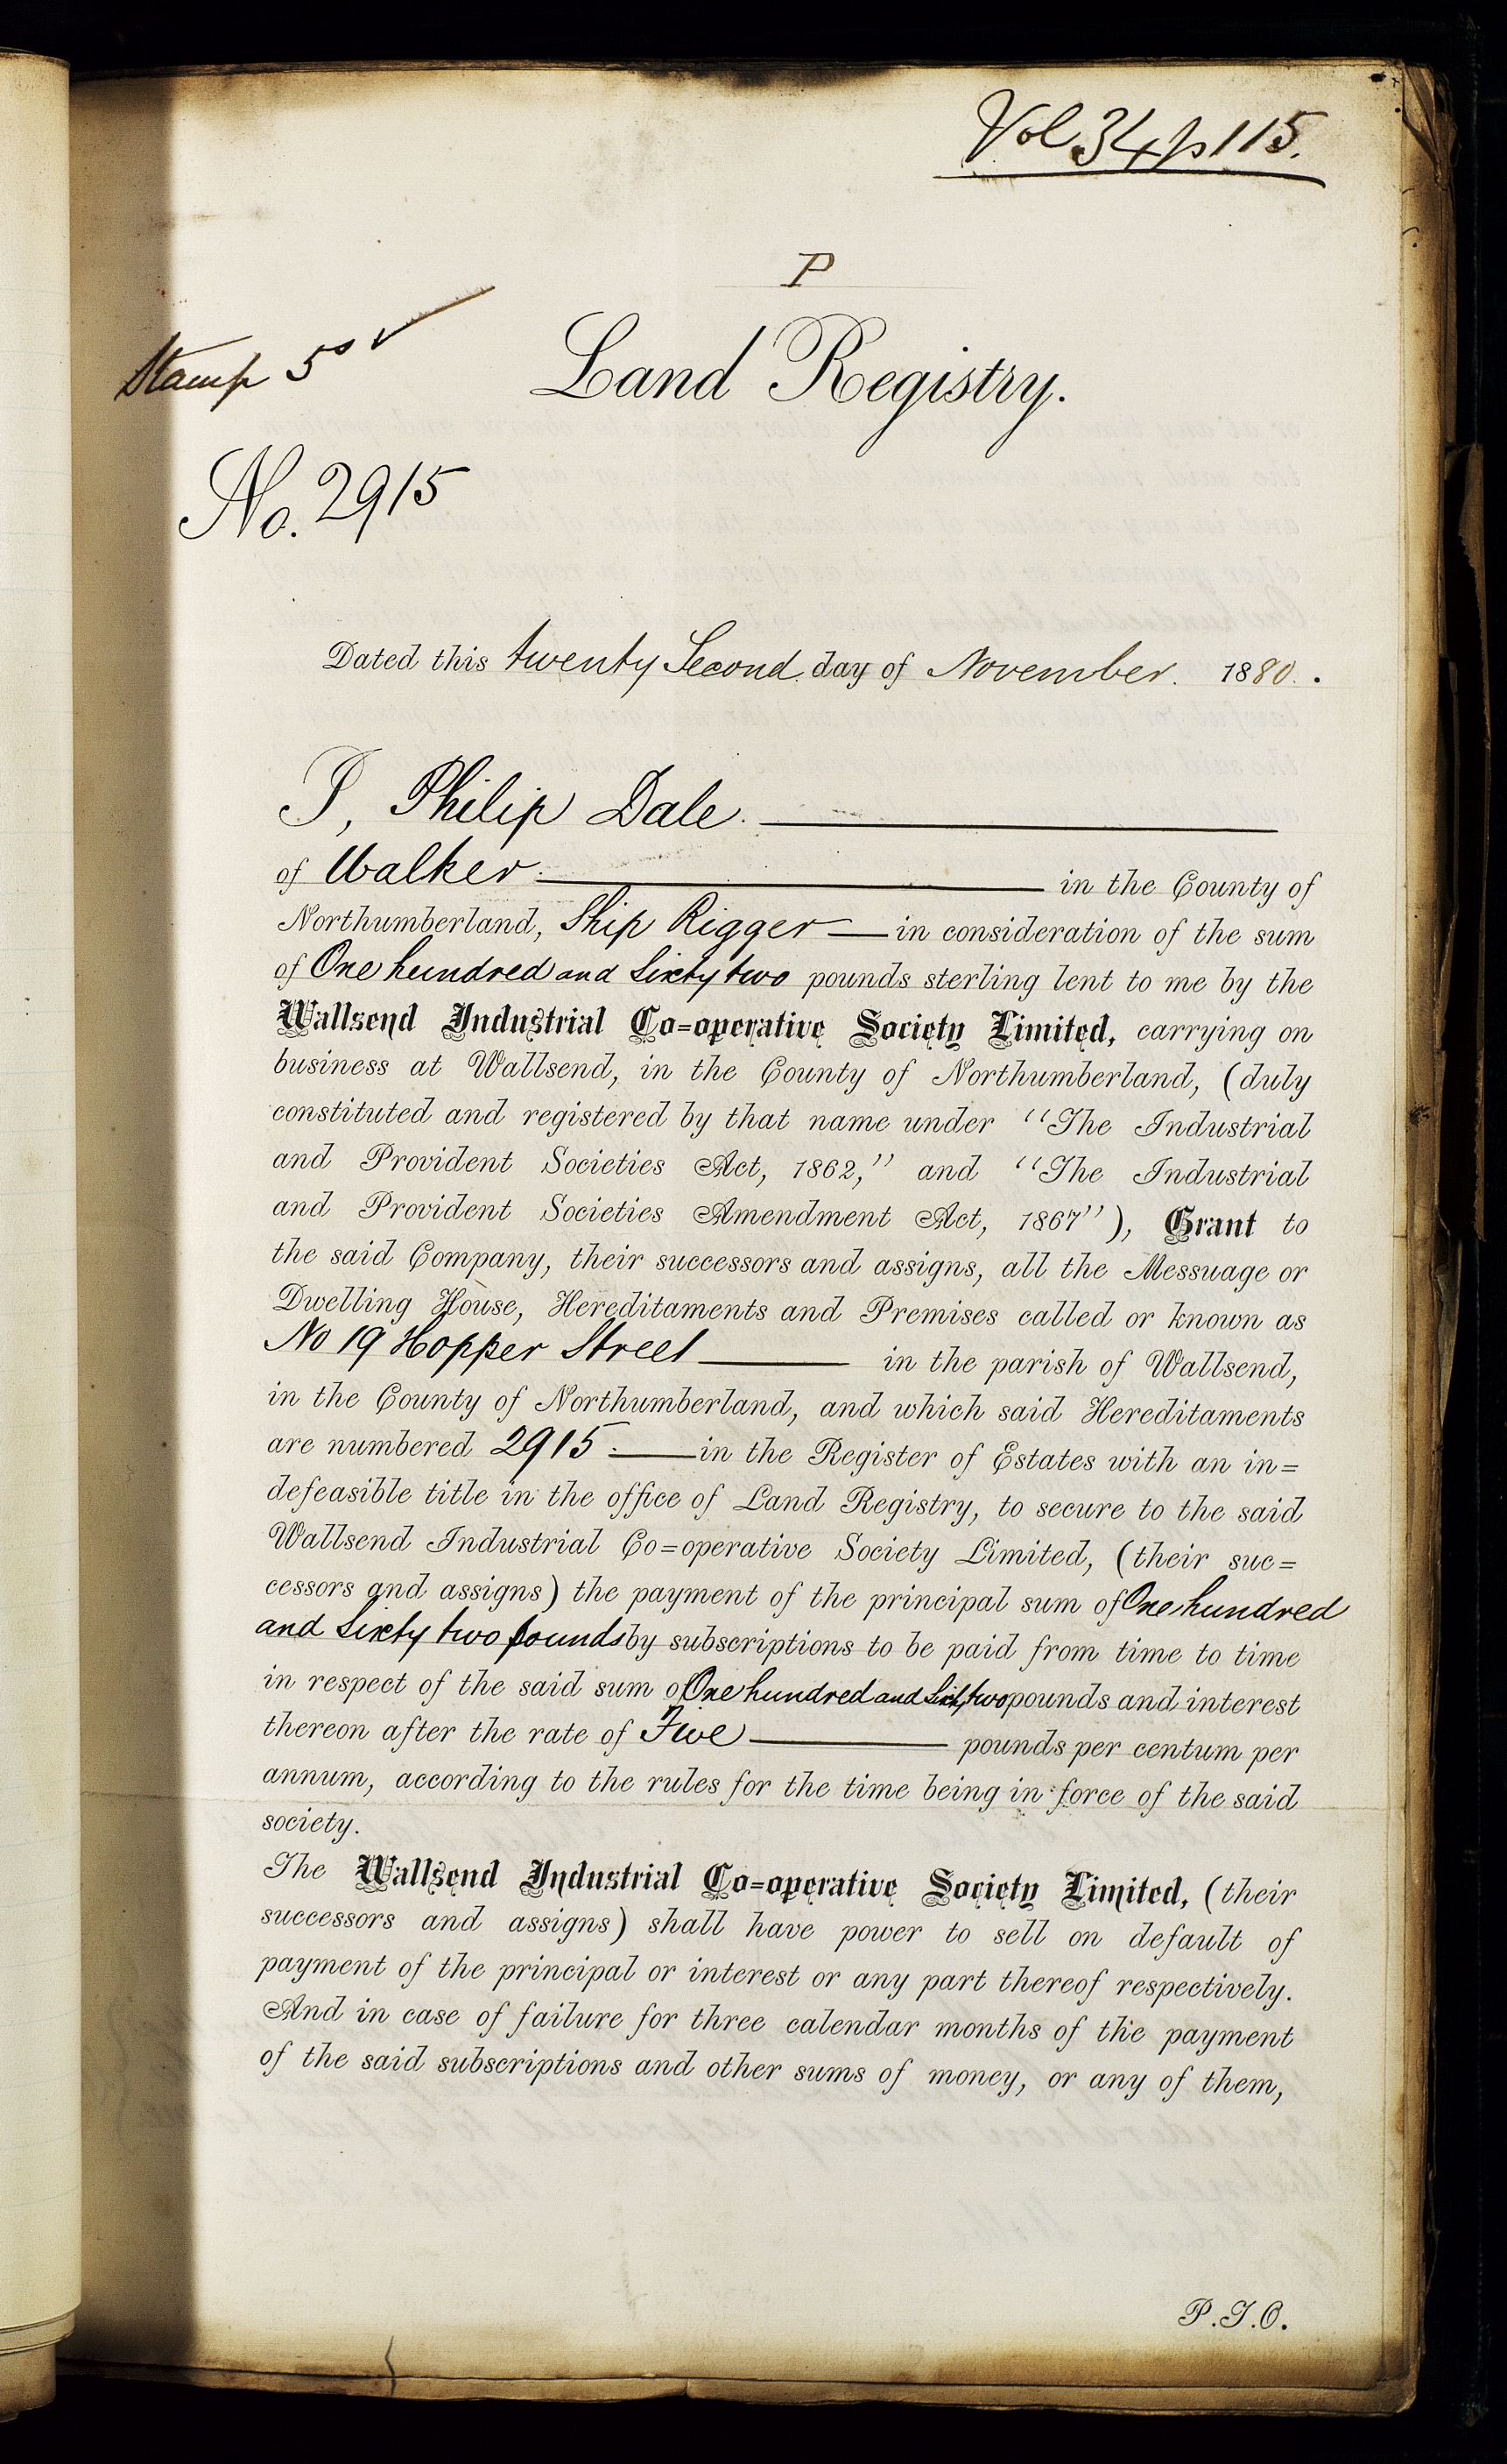 Vol 34 p 115.
P
Stamp 5s
Land Registry.
No. 2915
Dated this twenty Second day of November. 1880.
I, Philip Dale.
of Walker in the County of
Northumberland, Ship Rigger in consideration of the sum
of One hundred and Sixty two pounds sterling lent to me by the
Wallsend Industrial Co=operative Society Limited, carrying on
business at Wallsend, in the County of Northumberland, (duly
constituted and registered by that name under "The Industrial
and Provident Societies Act, 1862," and "The Industrial
and Provident Societies Amendment Act, 1867"), Grant to
the said Company, their successors and assigns, all the Messuage or
Dwelling House, Hereditaments and Premises called or known as
No 19 Hopper Street in the parish of Wallsend,
in the County of Northumberland, and which said Hereditaments
are numbered 2915. in the Register of Estates with an in=
defeasible title in the office of Land Registry, to secure to the said
Wallsend Industrial Co=operative Society Limited, (their suc=
cessors and assigns) the payment of the principal sum of One hundred
and Sixty two pounds by subscriptions to be paid from time to time
in respect of the said sum of One hundred and Sixty two pounds and interest
thereon after the rate of Five pounds per centum per
annum, according to the rules for the time being in force of the said
society.
The Wallsend Industrial Co=operative Society Limited, (their
successors and assigns) shall have power to sell on default of
payment of the principal or interest or any part thereof respectively.
And in case of failure for three calendar months of the payment
of the said subscriptions and other sums of money, or any of them,
P.T.O.